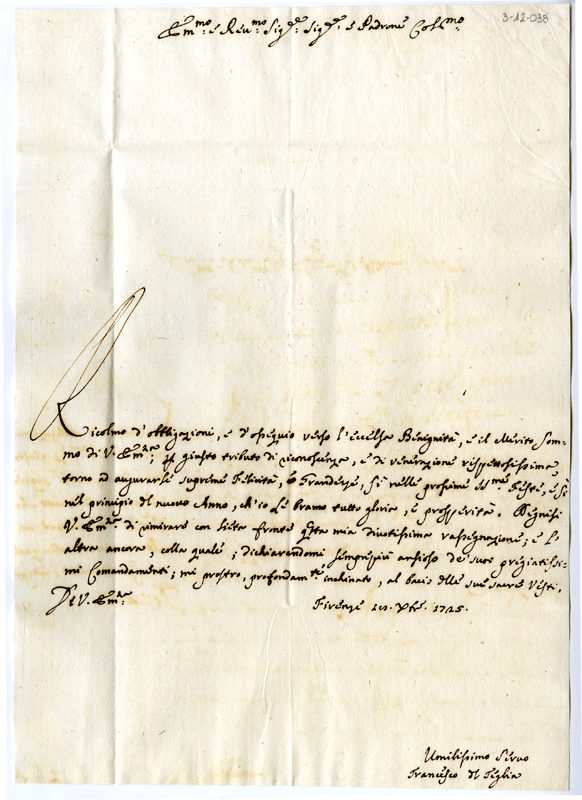 3-12-038
Em.mo e Rev.mo Sig.re Sig.re e Padrone Col.mo
Ricolmo d'obbligazioni, e d'ossequio verso l'eccelsa Benignità, e il Merito Som-
mo di V. Em.za; p giusto tributo di riconoscenza, e di venerazione rispettosissima
torno ad augurarle supreme Felicità, e Grandezze, sì nelle prossime SS.me Feste, e sì
nel principio del nuovo Anno, ch'io Le bramo tutto gloria, e prosperità. Degnisi
V. Em.za di rimirare con lieta fronte questa mia divotissima rassegnazione; e l'
altra ancora, colla quale; dichiarandomi sempre più ansioso de' suoi pregiatissi-
mi Comandamenti; mi prostro, profondam.te inchinato, al bacio delle sue sacre Vesti.
Di V. Em.za
Firenze Xbre. 1725.
Umilissimo Servo
Francesco del Teglia